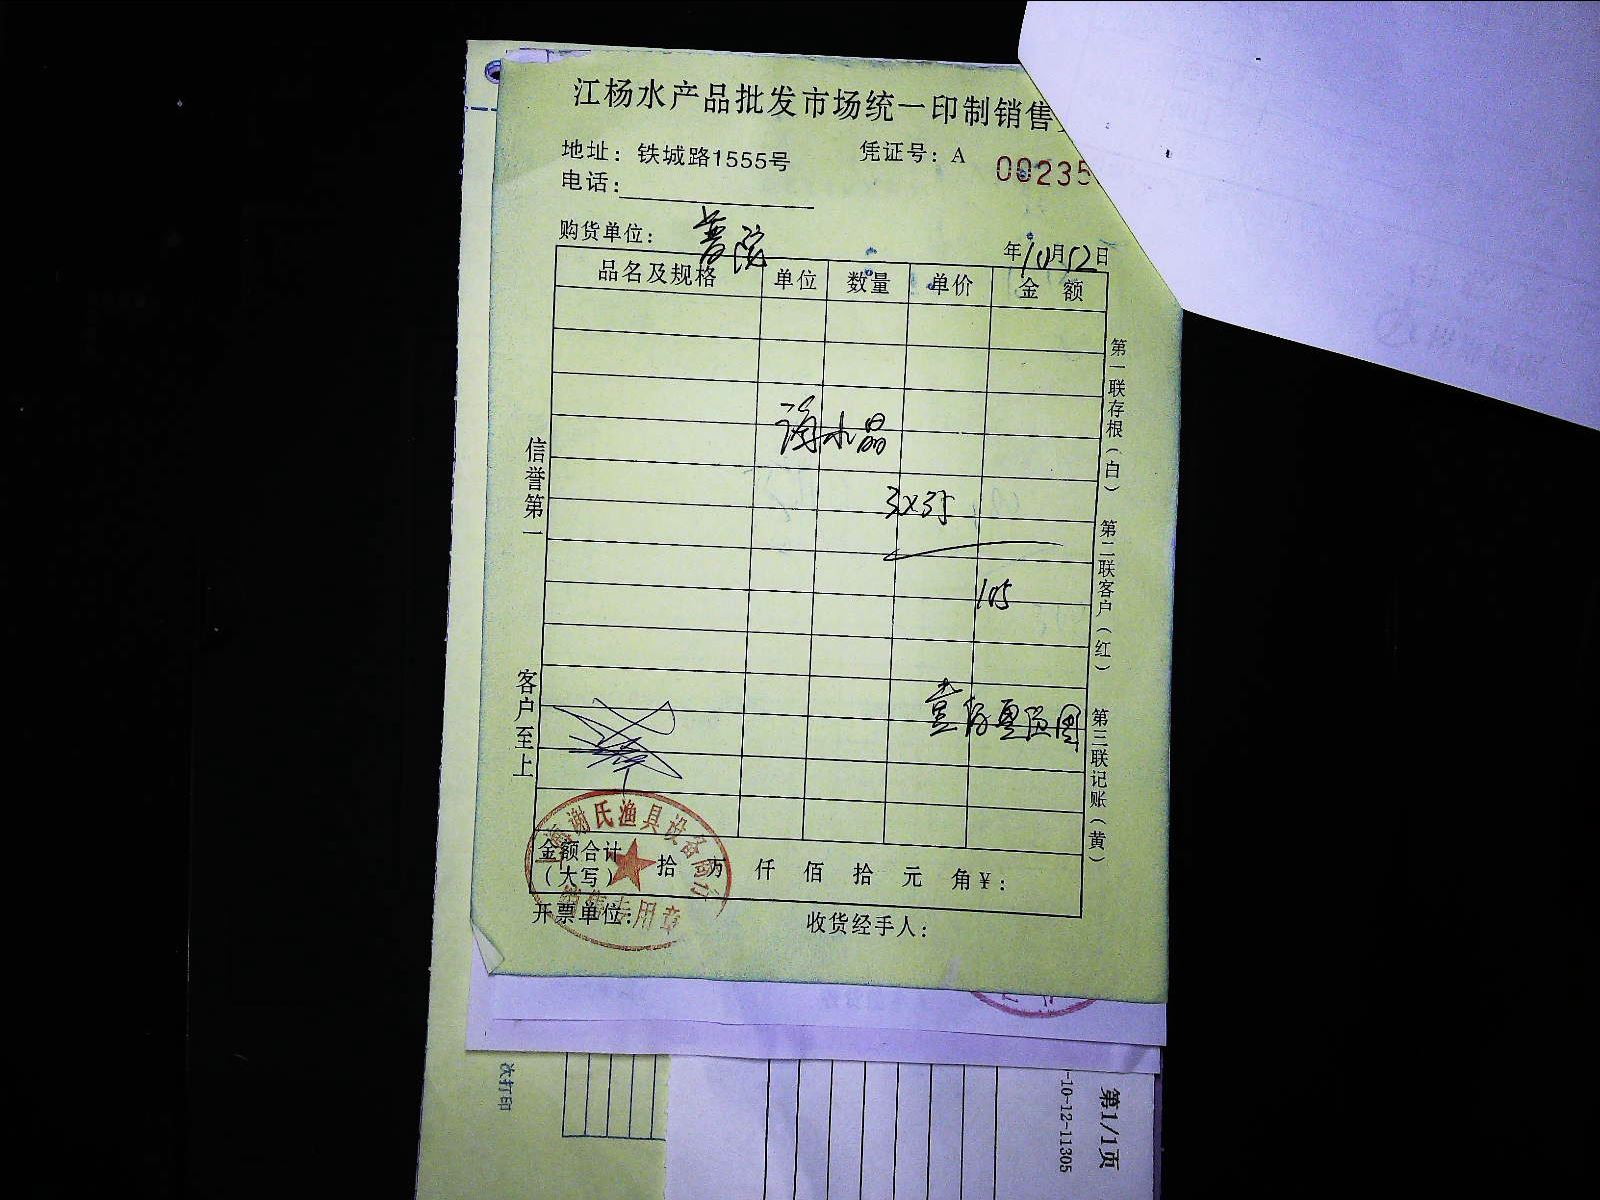 江杨水产品批发市场统一印制销售
地址：铁城路1555号
凭证号：A 00235
电话：
购货单位：普陀
年10月12日
品名及规格 单位 数量 单价 金额
海水晶
3×35
105
信誉第一
客户至上
第一联存根（白）
第二联客户（红）
第三联记账（黄）
谢氏渔具设备商行
销售专用章
金额合计（大写） 拾 万 仟 佰 拾 元 角￥：
开票单位：
收货经手人：
次打印
-10-12-11305
第1/1页